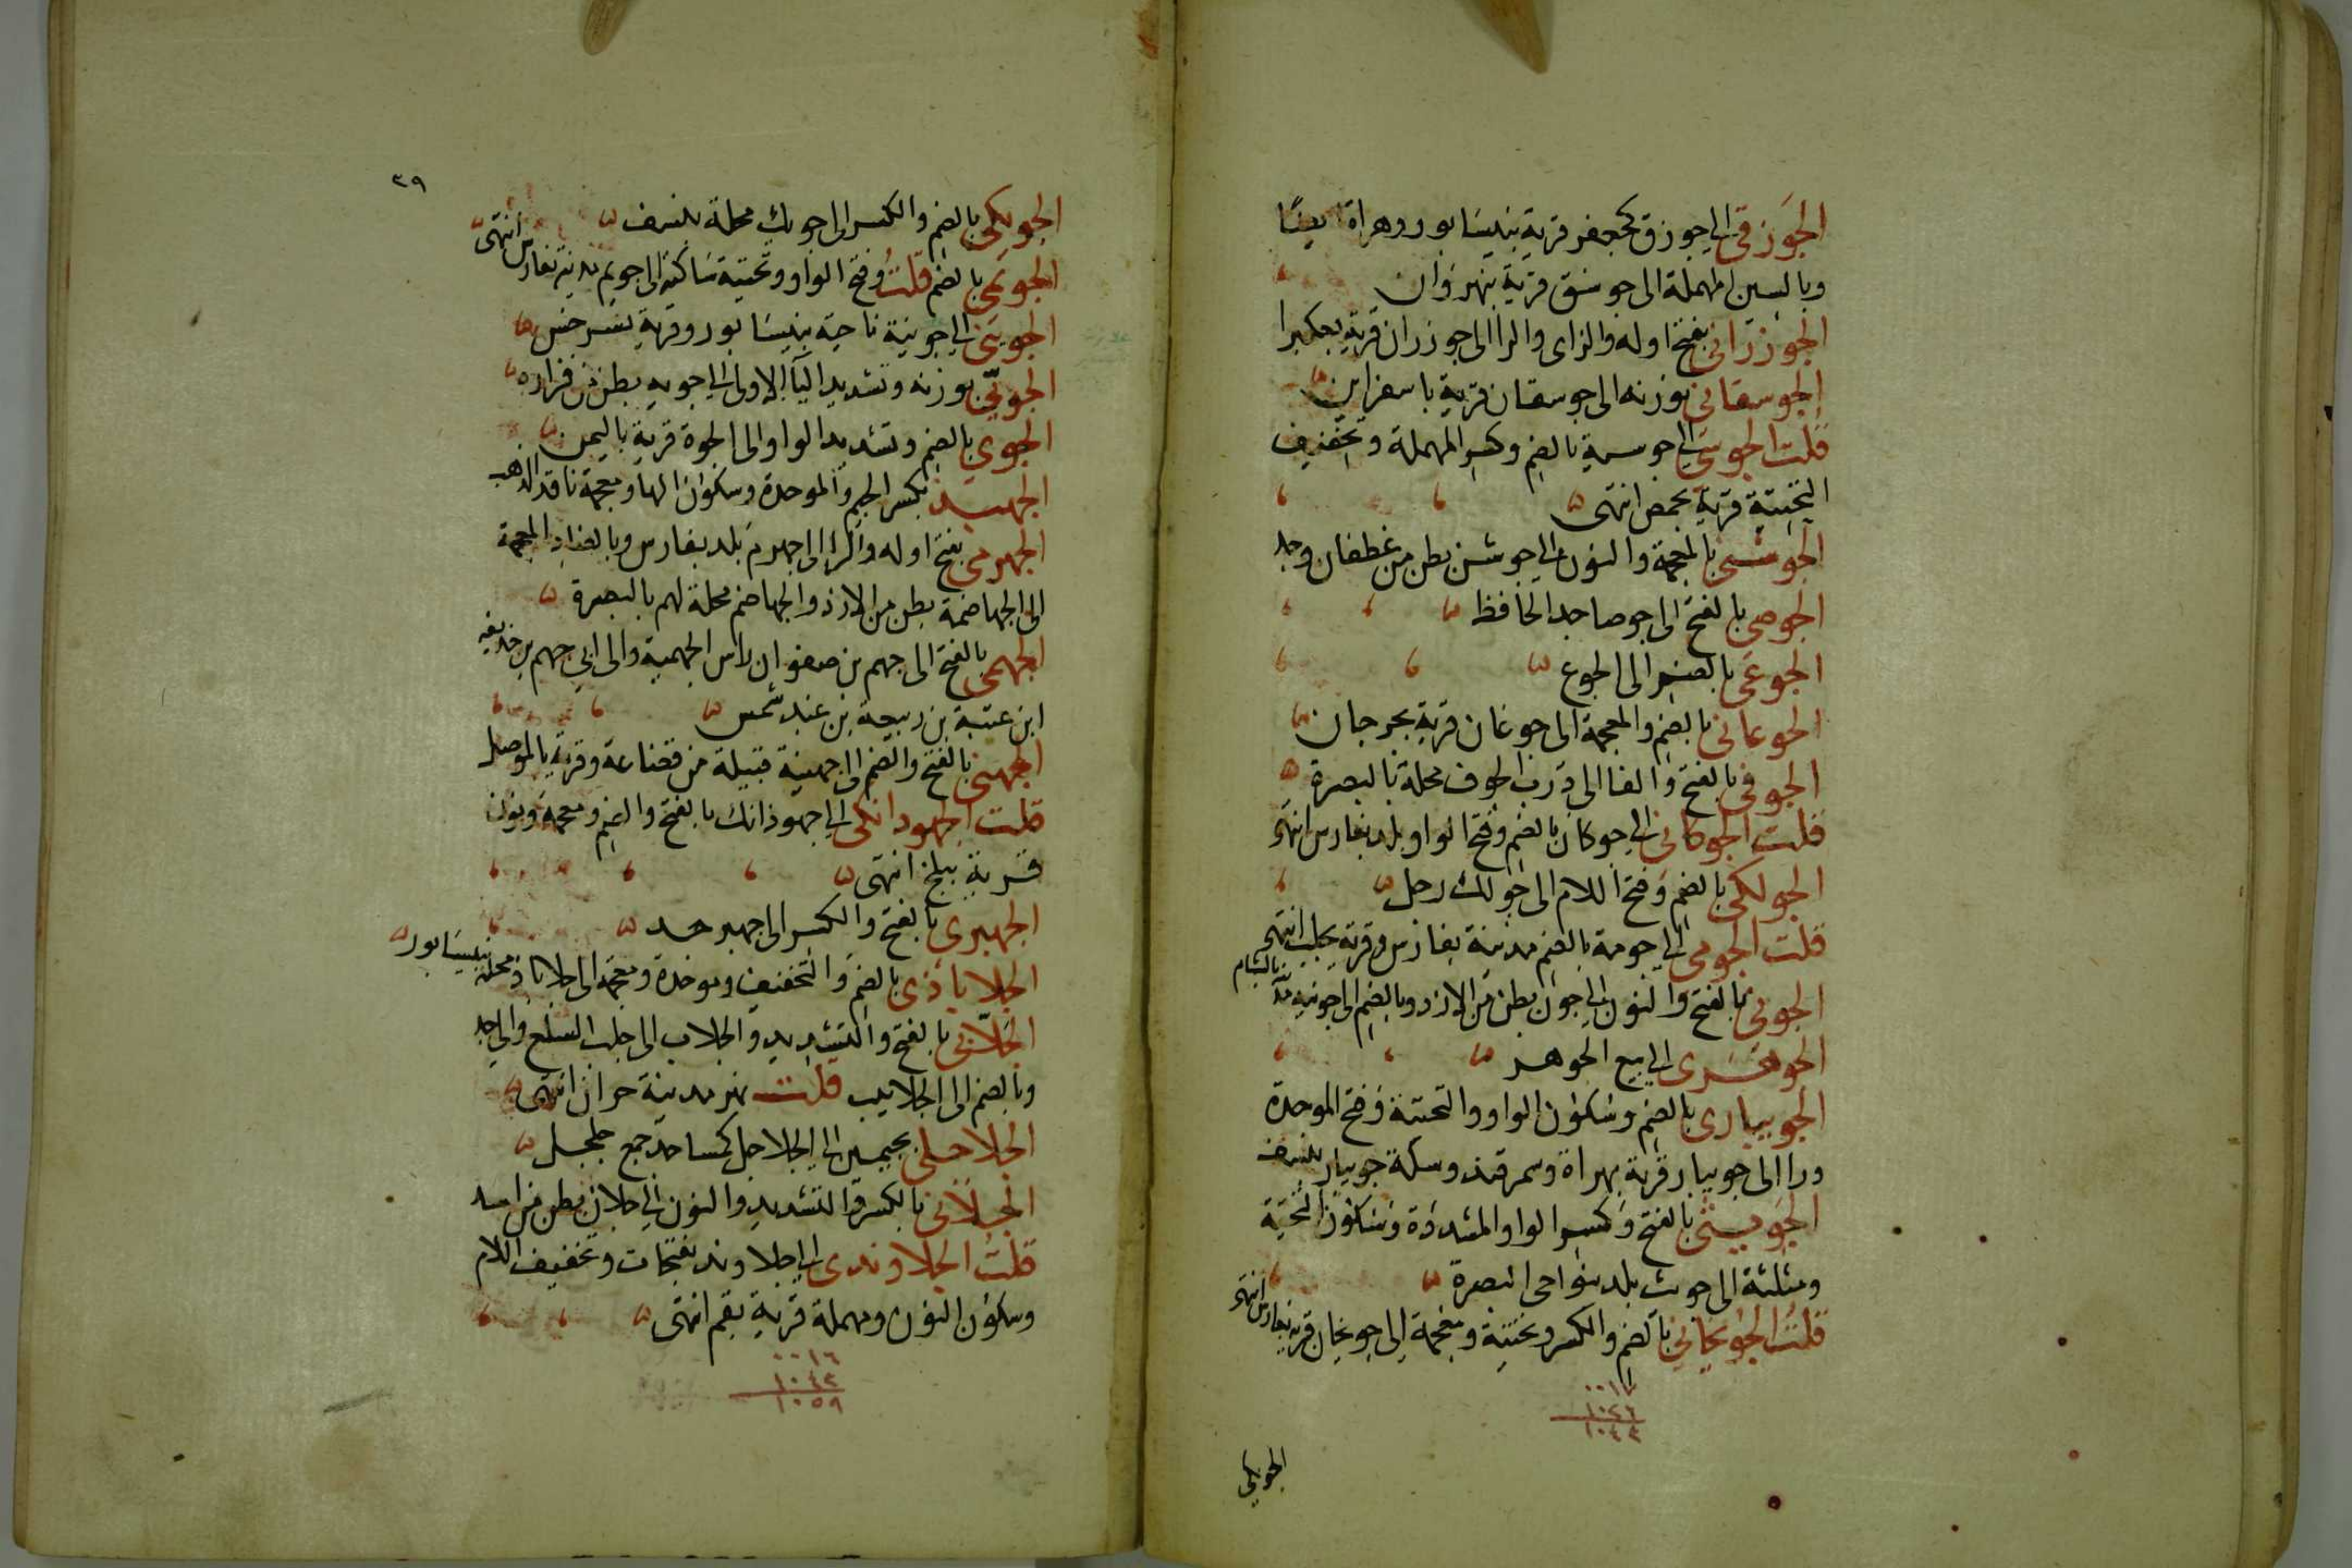 الجوزقي الى جوزق كجعفر قرية بنيسابور وهراة ايضا
وبالسين المهملة الى جوسق قرية بنهروان
الجوزراني بفتح اوله والزاى والرا الى جوزران قرية بعكبرا
الجوسقاني بوزنه الى جوسقان قرية باسفراين
قلت الجوسي الى جوسية بالضم وكسر المهملة وتخفيف
التحتية قرية بحمص انتهى
الجوشني بالمعجمة والنون الى جوشن بطن من غطفان وجد
الجوصي بالفتح الى جوصا جد الحافظ
الجوعى بالضم الى الجوع
الجوغاني بالضم والمعجمة الى جوغان قرية بجرجان
الجوفي بالفتح والفا الى درب الجوف محلة بالبصرة
قلت الجوكاني الى جوكان بالضم وفتح الواو بلد بفارس انتهى
الجولكي بالضم وفتح اللام الى جولك رجل
قلت الجومي الى جومة بالضم مدينة بفارس وقرية بحلب انتهى
الجوني بالفتح والنون الى جون بطن من الازد وبالضم الى جونية بلد بالشام
الجوهرى الى بيع الجوهر
الجويبارى بالضم وسكون الواو والتحتية وفتح الموحدة
ورا الى جويبار قرية بهراة وسمرقند وسكة جويبار بنسف
الجويثي بالفتح وكسر الواو المشددة وسكون التحتية
ومثلثة الى جويث بلد بنواحى البصرة
قلت الجويخاني بالضم والكسر وتحتية ومعجمة الى جويخان قرية بفارس انتهى
٠٠١٧
١٠٢٦
١٠٤٣
الجويكي
٣٩
الجويكي بالضم والكسر الى جويك محلة بنسف
الجويمي بالضم قلت وفتح الواو وتحتية ساكنة الى جويم مدينة بفارس انتهى
الجويني الى جوينة ناحية بنيسابور وقرية بسرخس
الجويي بوزنه وتشديد اليا الاولى الى جوية بطن من فزارة
الجوي بالضم وتشديد الواو الى الجوة قرية باليمن
الجهبذ بكسر الجيم والموحدة وسكون الها ومعجمة ناقد الذهب
الجهرمي بفتح اوله والرا الى جهرم بلد بفارس وبالضاد المعجمة
الى الجهاضمة بطن من الازد والجهاضم محلة لهم بالبصرة
الجهمي بالفتح الى جهم بن صفوان راس الجهمية والى ابي جهم بن حذيفة
ابن عتبة بن ربيعة بن عبد شمس
الجهني بالفتح والضم الى جهينة قبيلة من قضاعة وقرية بالموصل
قلت الجهوذانكي الى جهوذانك بالفتح والضم ومعجمة ونون
قرية ببلخ انتهى
الجهيري بالفتح والكسر الى جهير جد
الجلاباذى بالضم والتخفيف وموحدة ومعجمة الى جلاباذ محلة بنيسابور
الجلابي بالفتح والتشديد والجلاب الى جلب السلع والى جد
وبالضم الى الجلاب قلت نهر مدينة حران انتهى
الجلاجلي بجيمين الى الجلاجل كمساجد جمع جلجل
الجلاني بالكسر والتشديد والنون الى جلان بطن من اسد
قلت الجلاوندى الى جلاوند بفتحات وتخفيف اللام
وسكون النون ومهملة قرية بقم انتهى
٠٠١٦
١٠٤٣
١٠٥٩